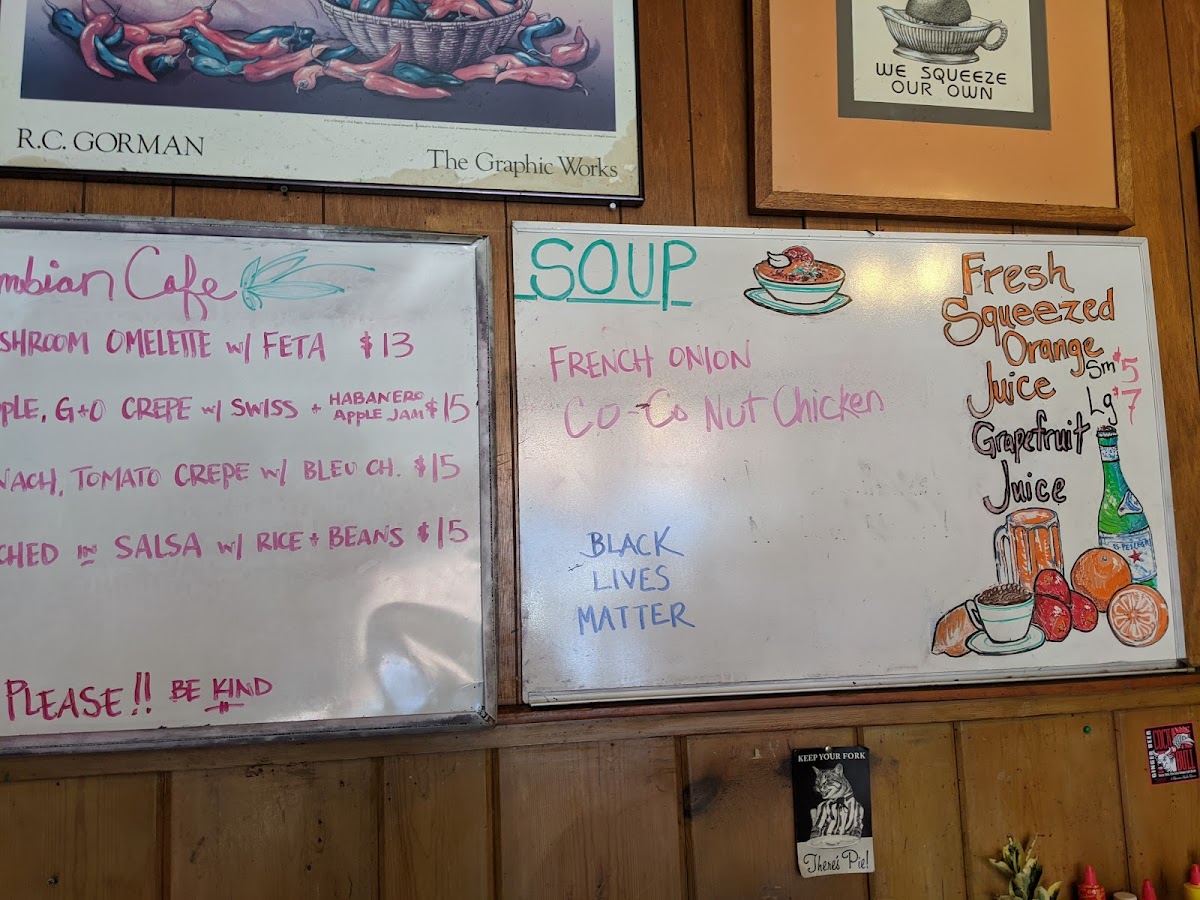 R.C. GORMAN
The Graphic Works
WE SQUEEZE
OUR OWN
mbian Cafe
SHROOM OMELETTE w/ FETA $13
PLE, G+O CREPE w/ SWISS + HABANERO APPLE JAM $15
NACH, TOMATO CREPE w/ BLEU CH. $15
CHED IN SALSA w/ RICE + BEANS $15
PLEASE!! BE KIND
SOUP
FRENCH ONION
CO-Co Nut Chicken
BLACK
LIVES
MATTER
Fresh
Squeezed
Orange
Juice
Sm $5
Lg $7
Grapefruit
Juice
KEEP YOUR FORK
There's Pie!
GINGER BEER
COCK
BULL